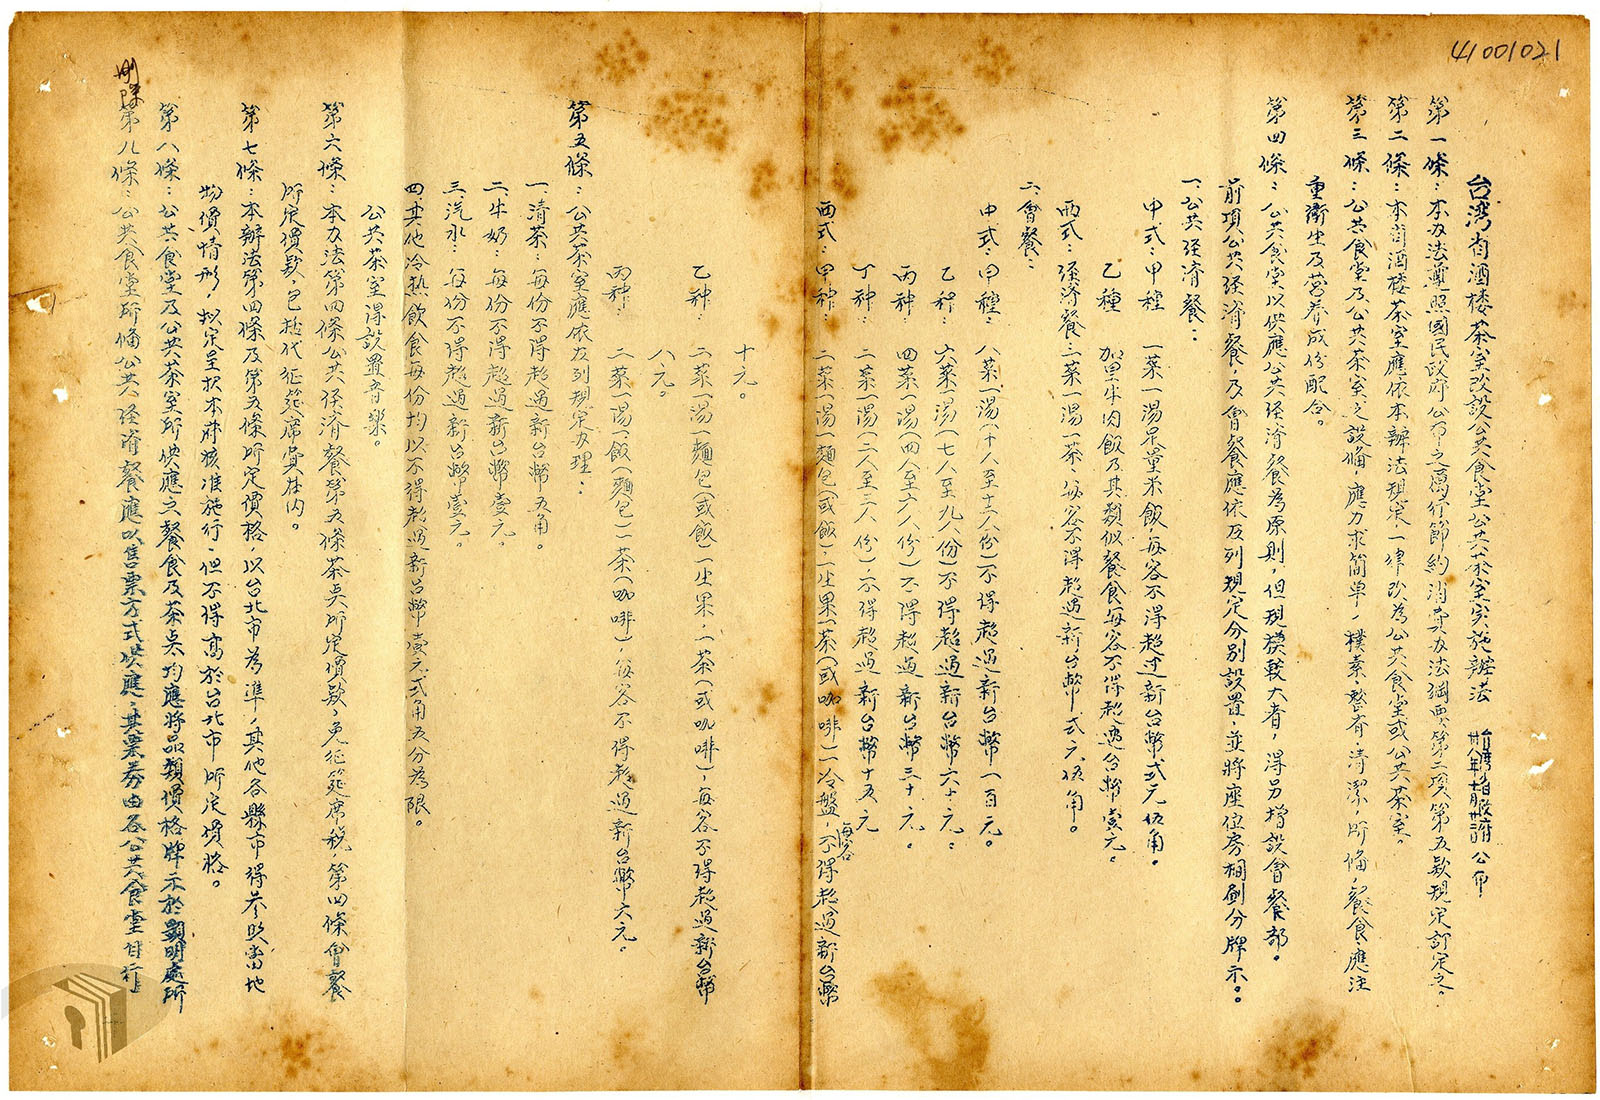 41001021
台湾省酒楼茶室改設公共食堂公共茶室实施辦法 台灣省政府卅八年十月廿二日公布
第一條：本办法遵照國民政府公布之厲行節約消費办法綱要第二項第五款規定訂定之。
第二條：本省酒楼茶室應依本辦法規定一律改為公共食堂或公共茶室。
第三條：公共食堂及公共茶室之設備應力求簡单，樸素，整斉清潔，所備，餐食應注
重衛生及营养成份配合。
第四條：公共食堂以供應公共径済餐為原則，但規模較大者，得另增設會餐部。
前項公共径済餐，及會餐應依左列規定分別設置，並將座位房棚劃分牌示。
一、公共径済餐：
中式：甲種 一菜一湯足量米飯，每客不得超过新台幣弍元伍角。
乙種 加里牛肉飯及其類似餐食每客不得超過台幣壹元。
西式：径済餐二菜一湯一茶，每客不得超過新台幣弍元伍角。
二、會餐：
中式：甲種：八菜一湯（十人至十二人份）不得超過新台幣一百元。
乙种：六菜一湯（七人至九人份）不得超過新台幣六十元。
丙种：四菜一湯（四人至六人份）不得超過新台幣三十元。
丁种：二菜一湯（二人至三人份），不得超過新台幣十五元
西式：甲种：二菜一湯一麵包（或飯），一生果一茶（或咖啡）一冷盤，每客不得超過新台幣
十元。
乙种：二菜一湯一麵包（或飯）一生果，一茶（或咖啡），每客不得超過新台幣
八元。
丙种：二菜一湯一飯（麵包）一茶（咖啡），每客不得超過新台幣六元。
第五條：公共茶室應依左列規定办理：
一、清茶：每份不得超過新台幣五角。
二、牛奶：每份不得超過新台幣壹元。
三、汽水：每份不得超過新台幣壹元。
四、其他冷热飲食每份均以不得超過新台幣壹元弍角五分為限。
公共茶室得設置音樂。
第六條：本办法第四條公共径済餐第五條茶点所定價款，免征筵席稅，第四條會餐
所定價款，包括代征筵席費在内。
第七條：本辦法第四條及第五條所定價格，以台北市為準，其他各縣市得參照當地
物價情形，拟定呈报本府核准施行，但不得高於台北市所定價格。
第八條：公共食堂及公共茶室所供應之餐食及茶点均應將品類價格牌示於顯明處所
刪除
第九條：公共食堂所備公共径済餐應以售票方式供應，其票券由各公共食堂自行